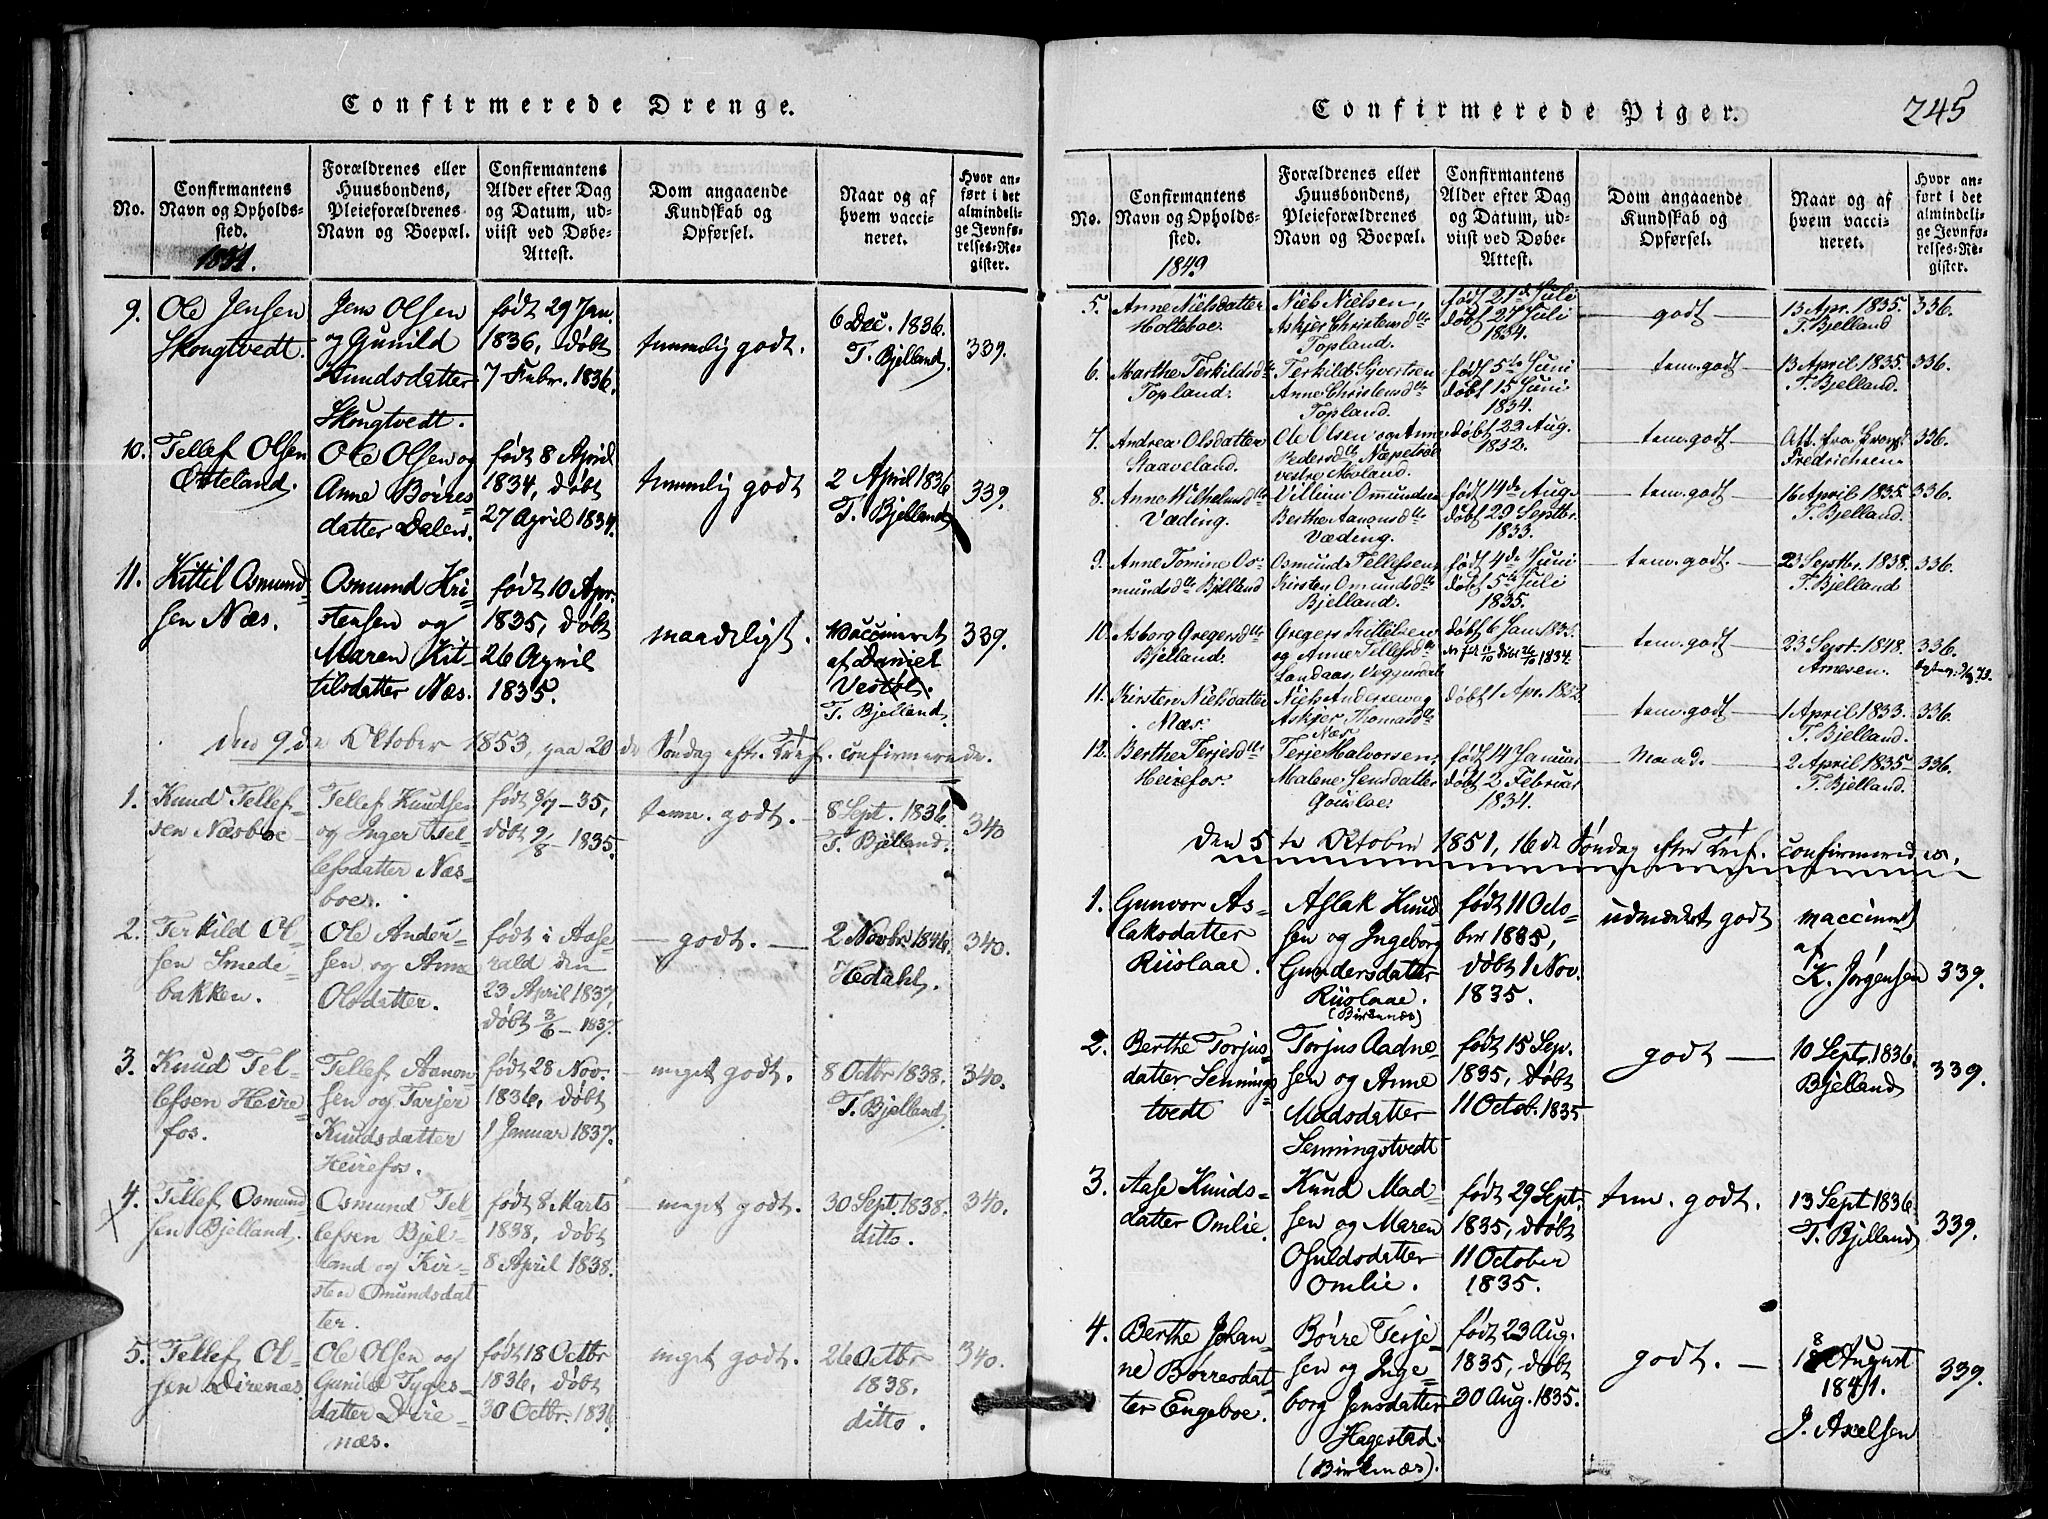 Confirmerede Drenge.
No.
Confirmantens
Navn og Opholds-
sted.
1851.
Forældrenes eller
Huusbondens,
Pleieforældrenes
Navn og Boepæl.
Confirmantens
Alder efter Dag
og Datum, ud-
viist ved Døbe-
Attest.
Dom angaaende
Kundskab og
Opførsel.
Naar og af
hvem vacci-
neret.
Hvor an-
ført i det
almindeli-
ge Jevnfø-
relses-Re-
gister.
9.
Ole Jensen
Skougtvedt.
Jens Olsen
og Gunild
Knudsdatter
Skougtvedt.
født 29 Jan.
1836, døbt
7 Febr. 1836.
temmelig godt.
6 Dec. 1836.
T. Bjelland.
339.
10.
Tellef Olsen
Osteland.
Ole Olsen og
Anne Børres
datter Dalen.
født 8 April
1834, døbt
27 April 1834.
temmelig godt
2 April 1836
T. Bjelland
339.
11.
Kittil Osmund-
sen Næs.
Osmund Kri-
stensen og
Maren Kit-
tilsdatter Næs.
født 10 Apr.
1835, døbt
26 April
1835.
maadeligt.
Vaccineret
af Daniel
Vestøl.
T. Bjelland.
339.
Den 9de Oktober 1853, paa 20de Søndag eftr. Tref. confirmerede.
1.
Knud Tellef-
sen Næsboe
Tellef Knudsen
og Inger Tel-
lefsdatter Næs-
boe.
født 8/7 - 35,
døbt 9/8 - 1835.
tem. godt.
8 Sept. 1836.
T. Bjelland.
340
2.
Terkild Ol-
sen Smede-
bakken.
Ole Ander-
sen og Anne
Olsdatter.
født i Aase-
rald den
23 April 1837.
døbt 3/6 - 1837.
— godt. —
2 Novbr. 1846.
Hedahl.
340.
3.
Knud Tel-
lefsen Heire-
fos.
Tellef Aanon-
sen og Tarjer
Knudsdatter
Heirefos.
født 28 Nov.
1836, døbt
1 Januar 1837.
— meget godt.
8 Octbr 1838.
T. Bjelland.
340.
4.
Tellef Osmund
sen Bjelland.
Osmund Tel-
lefsen Bjel-
land og Kir-
sten Omundsdat
ter.
født 8 Marts
1838, døbt
8 April 1838.
— meget godt.
30 Sept. 1838.
ditto.
340.
5.
Tellef Ol-
sen Direnæs.
Ole Olsen og
Gunild Tyges-
datter Dire-
næs.
født 18 Octbr
1836, døbt
30 Octbr. 1836
meget godt.
26 Octbr
1838.
ditto.
340.
Confirmerede Piger.
245
No.
Confirmantens
Navn og Opholds-
sted.
1849
Forældrenes eller
Huusbondens,
Pleieforældrenes
Navn og Boepæl.
Confirmantens
Alder efter Dag
og Datum, ud-
viist ved Døbe-
Attest.
Dom angaaende
Kundskab og
Opførsel.
Naar og af
hvem vacci-
neret.
Hvor an-
ført i det
almindeli-
ge Jevnfø-
relses-Re-
gister.
5.
Anne Nielsdatter
Holteboe.
Niels Nielsen,
Askjer Christensdtr
Topland.
født 21de Juli
døbt 27 Juli
1834.
— godt —
13 Apr. 1835.
T. Bjelland
336.
6.
Marthe Terkildsdtr
Topland.
Terkild Syvertsen
Anne Christensdtr
Topland.
født 5te Juni
døbt 15 Juni
1834.
— tem. godt —
13 April 1835.
T. Bjelland.
336.
7.
Andrea Olsdatter
Staaveland.
Ole Olsen og Anne
Pedersdtr Næpetsøe
vestre Moland.
døbt 23 Aug.
1832.
— tem. godt —
Att. fra
Fredrichsen
336.
8.
Anne Wilhelmsdtr
Væding.
Villum Omundsen
Berthe Aanonsdtr
Væding.
født 14de Aug.
døbt 29 Septbr.
1833.
— tem. godt —
16 April 1835.
T. Bjelland.
336.
9.
Anne Tomine Os-
mundsdtr Bjelland
Osmund Tellefsen,
Kirsten Omundsdtr
Bjelland.
født 4de Juni
døbt 5te Juli
1835.
— tem. godt. —
23 Septbr. 1838.
T. Bjelland
336.
10.
Asborg Gregersdtr
Bjelland.
Gregers Kittelsen
og Anne Tellefsdtr
Landaas,
døbt 6 Jan. 1835.
født 11/10 døbt 26/10 1834.
— tem. godt —
23 Sept. 1848.
Arnesen.
336.
11.
Kirsten Nielsdatter
Næs.
Niels Andersen og
Askjer Thomasdtr
Næs
døbt 1 Apr. 1832.
— tem. godt —
1 April 1833.
T. Bjelland.
336.
12.
Berthe Terjesdtr
Heirefos.
Terje Halvorsen,
Malene Jensdatter
født 14 Januar
døbt 2 Februar
1834.
— Maad. —
2 April 1835
T. Bjelland.
336.
Den 5te Oktober 1851, 16de Søndag efter Tref. confirmeredes.
1.
Gunvor As-
laksdatter
Riislaae.
Aslak Knud
sen og Ingeborg
Gundersdatter
Riislaae.
(Birkenæs)
født 11 Octo-
ber 1835,
døbt 1 Nov.
1835.
udmærket godt
vaccineret
af
K. Jørgensen
339.
2.
Berthe Torjus-
datter Sennings
tvedt
Torjus Aadne-
sen og Anne
Madsdatter
Senningstvedt
født 15 Sep.
1835, døbt
11 Octob. 1835
godt —
10 Sept. 1836.
Bjelland
339.
3.
Aase Knuds-
datter Omlie.
Knud Mad-
sen og Maren
Osuldsdatter
Omlie.
født 29 Sept.
1835, døbt
11 October
1835.
tem. godt.
13 Sept 1836
T. Bjelland
339.
4.
Berthe Johan-
ne Børresdat-
ter Engeboe.
Børre Terje-
sen og Inge-
borg Jensdatter
Hagestad.
(Birkenæs).
født 23 Aug.
1835, døbt
30 Aug. 1835.
godt. —
18 August
1841.
J. Axelsen
339.